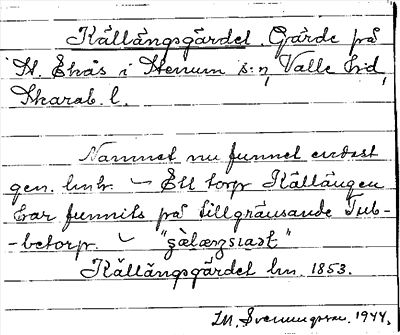 Källängsgärdet. Gärde på
St. Ekås i Stenum s:n, Valle hd,
Skarab. l.
Namnet nu funnet endast
gen. lmk. – Ett torp Källängen
har funnits på tillgränsande Tub-
-betorp. –
Källängsgärdet lm. 1853.
I.M. Svenungsson. 1944.